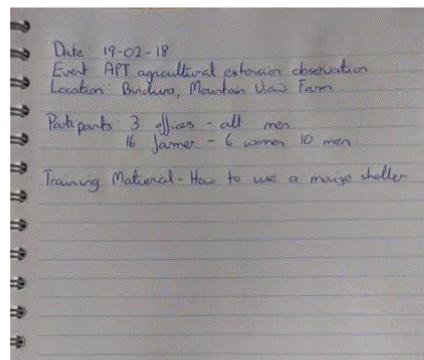 Date: 19-02-18
Event APT agricultural extension observation
Location: Bindura, Mountain View Farm
Participants: 3 officers - all men
16 farmer - 6 women 10 men
Training Material - How to use a maize sheller